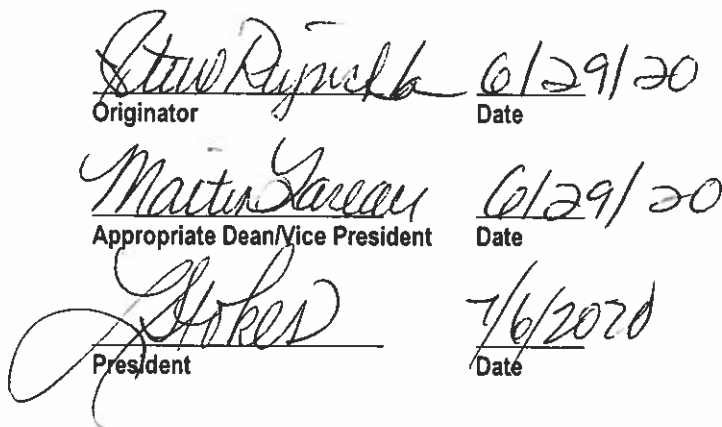 6/29/20
Originator Date
Martin Gareau 6/29/20
Appropriate Dean/Vice President Date
Stokes 7/6/2020
President Date